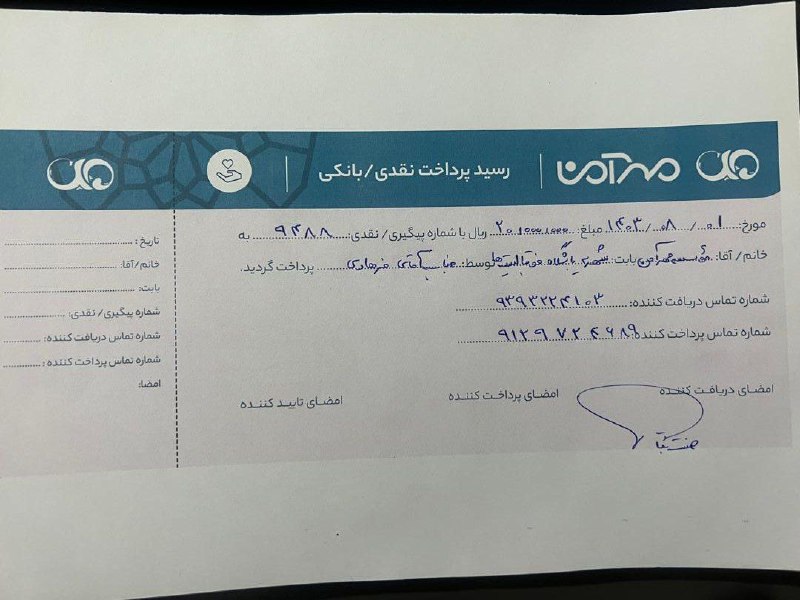 مهرآمن
رسید پرداخت نقدی/بانکی
مورخ: ۱۴۰۳/۰۸/۰۱ مبلغ: ۲۰,۰۰۰,۰۰۰ ریال با شماره پیگیری/ نقدی: ۹۴۸۸ به
خانم/ آقا: مؤسسه مهرآمن بابت: شهریه باشگاه توسط: جناب آقای فرهادی پرداخت گردید.
شماره تماس دریافت کننده: ۹۳۹۳۲۲۴۱۰۳
شماره تماس پرداخت کننده: ۹۱۲۹۷۲۴۶۸۹
امضای دریافت کننده
امضای پرداخت کننده
امضای تایید کننده
تاریخ:
خانم/آقا:
بابت:
شماره پیگیری/ نقدی:
شماره تماس دریافت کننده:
شماره تماس پرداخت کننده:
امضا: